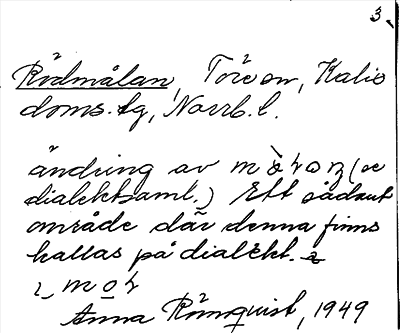 3.
Rödmålan, Töre sn, Kalix
doms.tg, Norrb.l.
ändring av
dialektsaml.) Ett sådant
område där denna finns
kallas på dialekt.
Anna Rönnquist, 1949